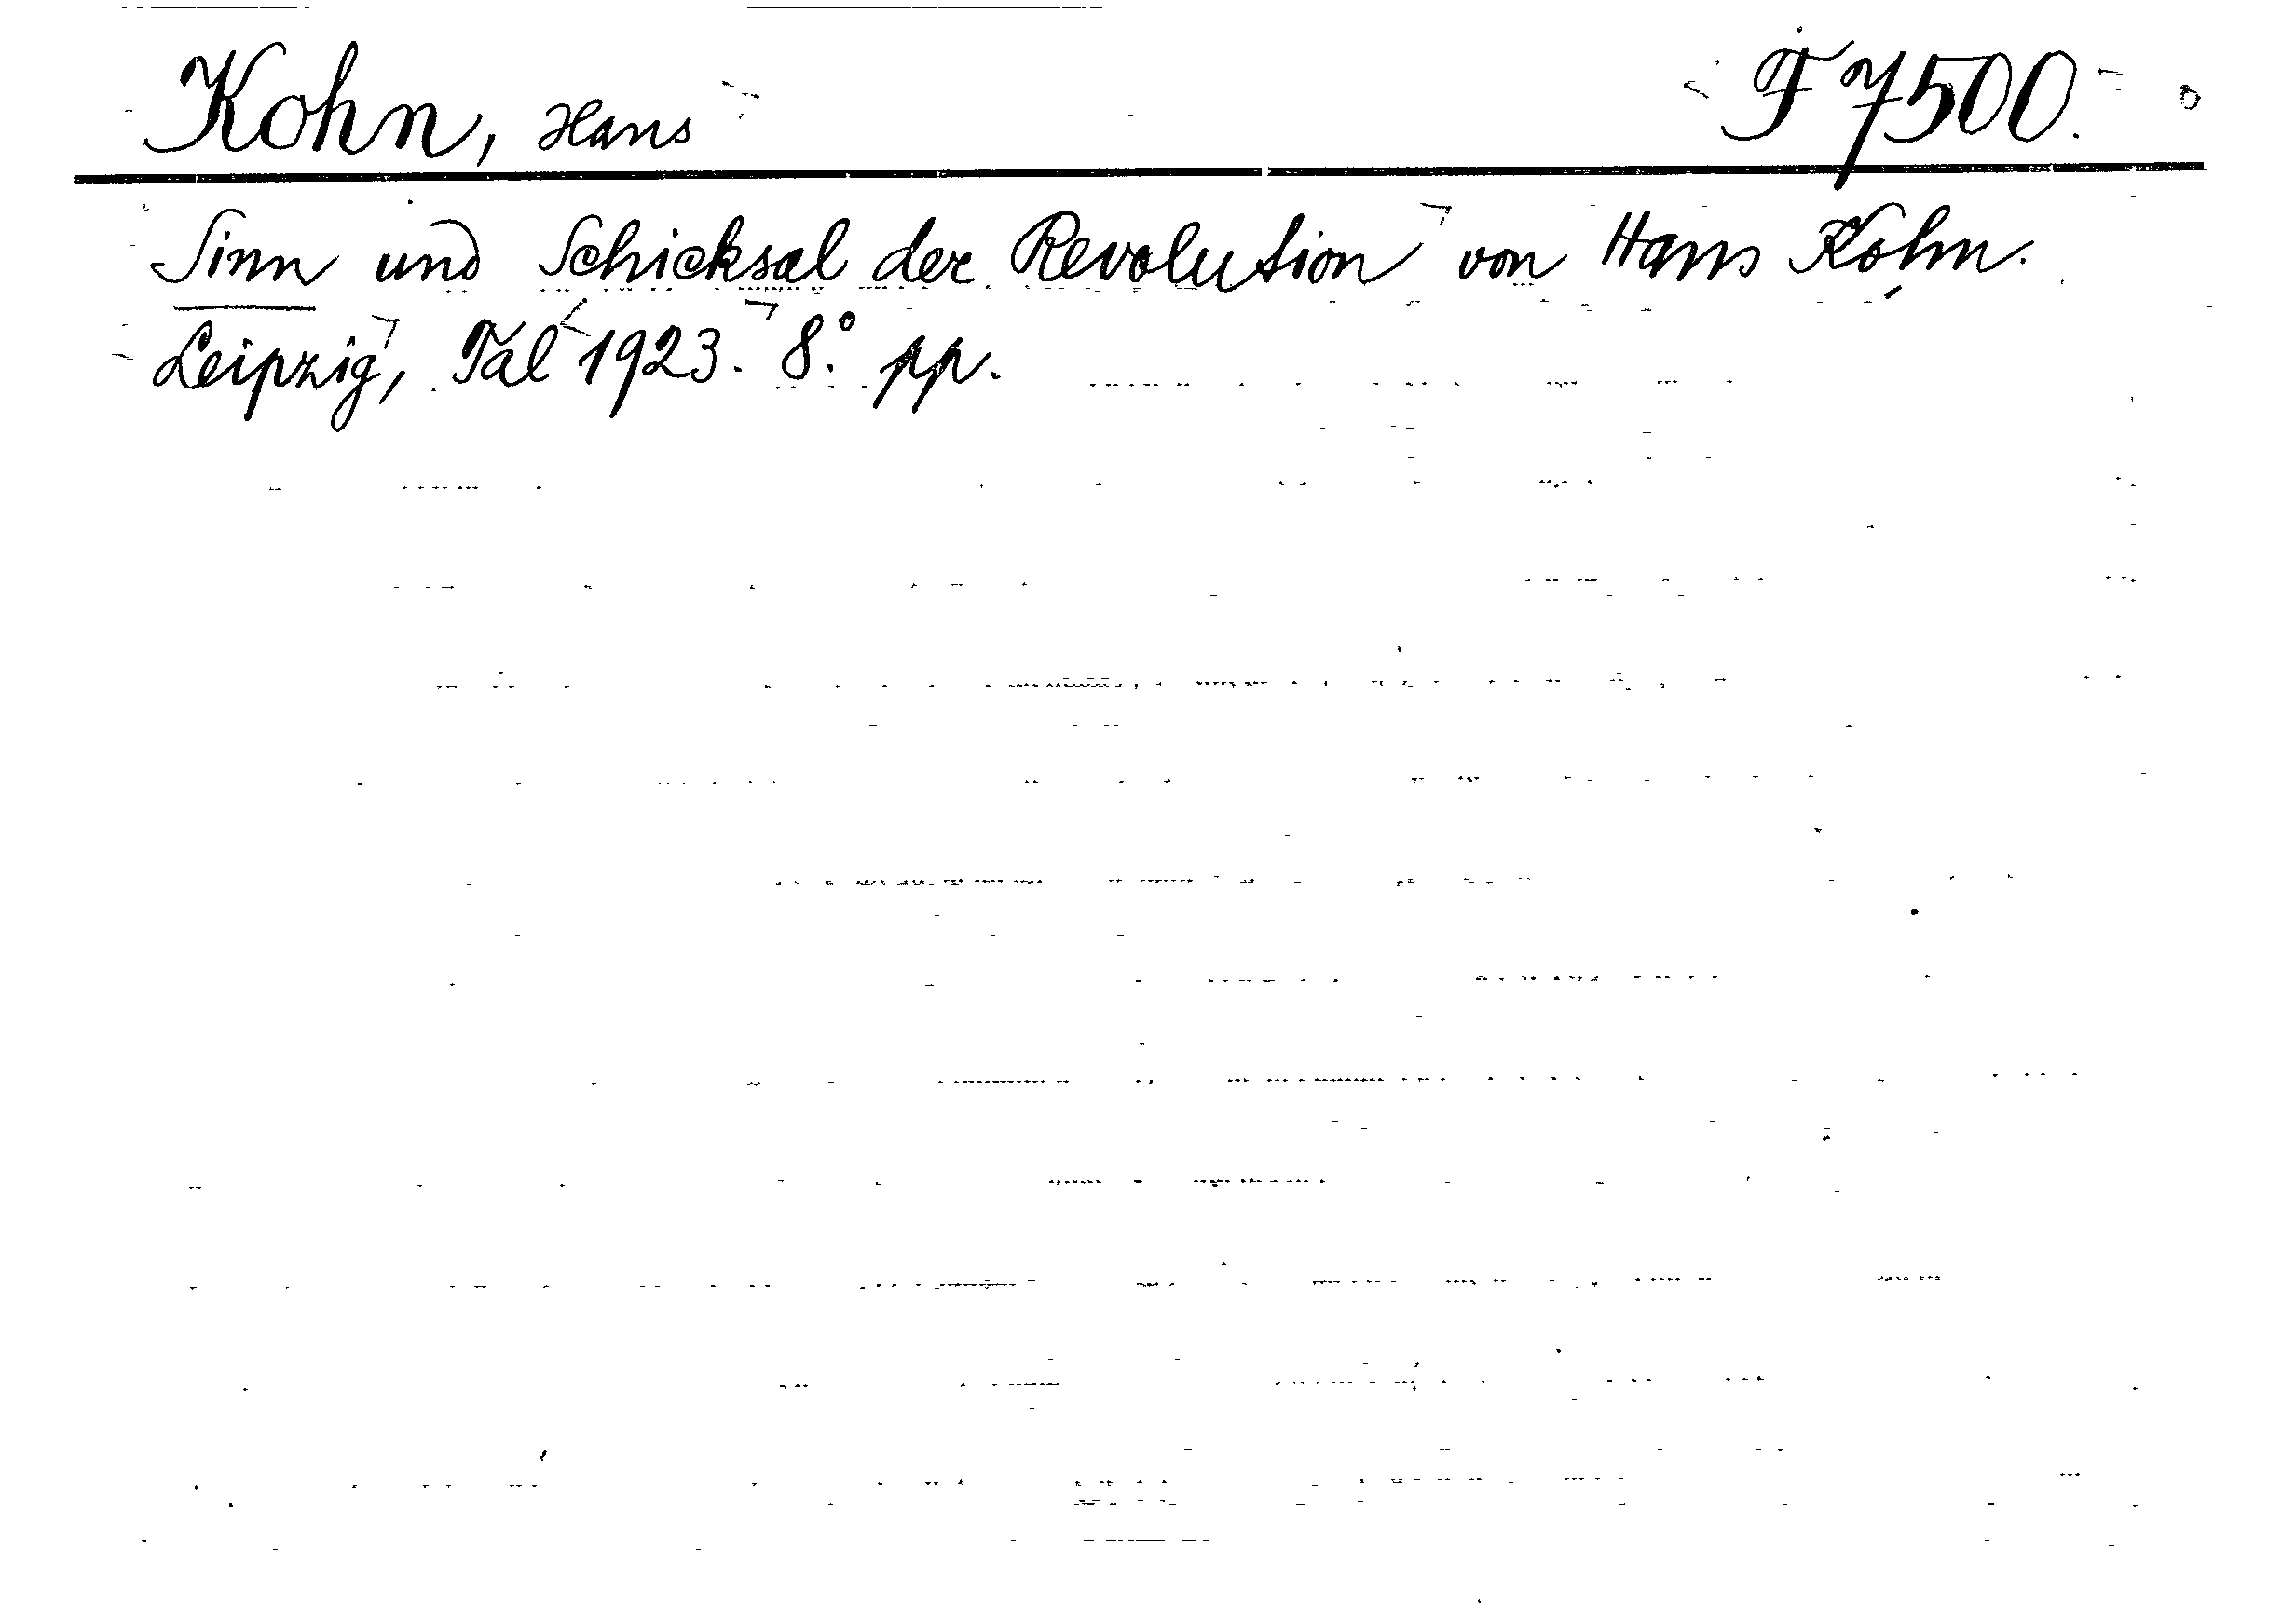 Kohn, Hans F 7500.
Sinn und Schicksal der Revolution von Hans Kohn.
Leipzig, Tal 1923. 8.° pp.